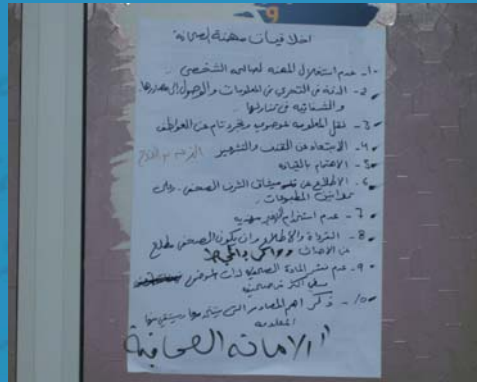 اخلاقيات مهنة الصحافة
1- عدم استغلال المهنه لصالحه الشخصي
2- الدقه في التحري عن المعلومات والوصول الى مصادرها
والشفافيه في تناولها
3- نقل المعلومه بوضوح وتجرد تام عن العواطف
4- الابتعاد عن القذف والتشهير
5- الاهتمام بالقياده
6- الاطلاع عن ميثاق الشرف الصحفي وعلى
قوانين المطبوعات
7- عدم استخدام
8- القراءة والاطلاع وان يكون الصحفي مطلع
عن الاحداث
9- عدم نشر المادة الصحفيه لذات الموضوع
في اكثر من صحيفه
10- ذكر اهم المصادر التي
المعلومه
الامانه الصحافية